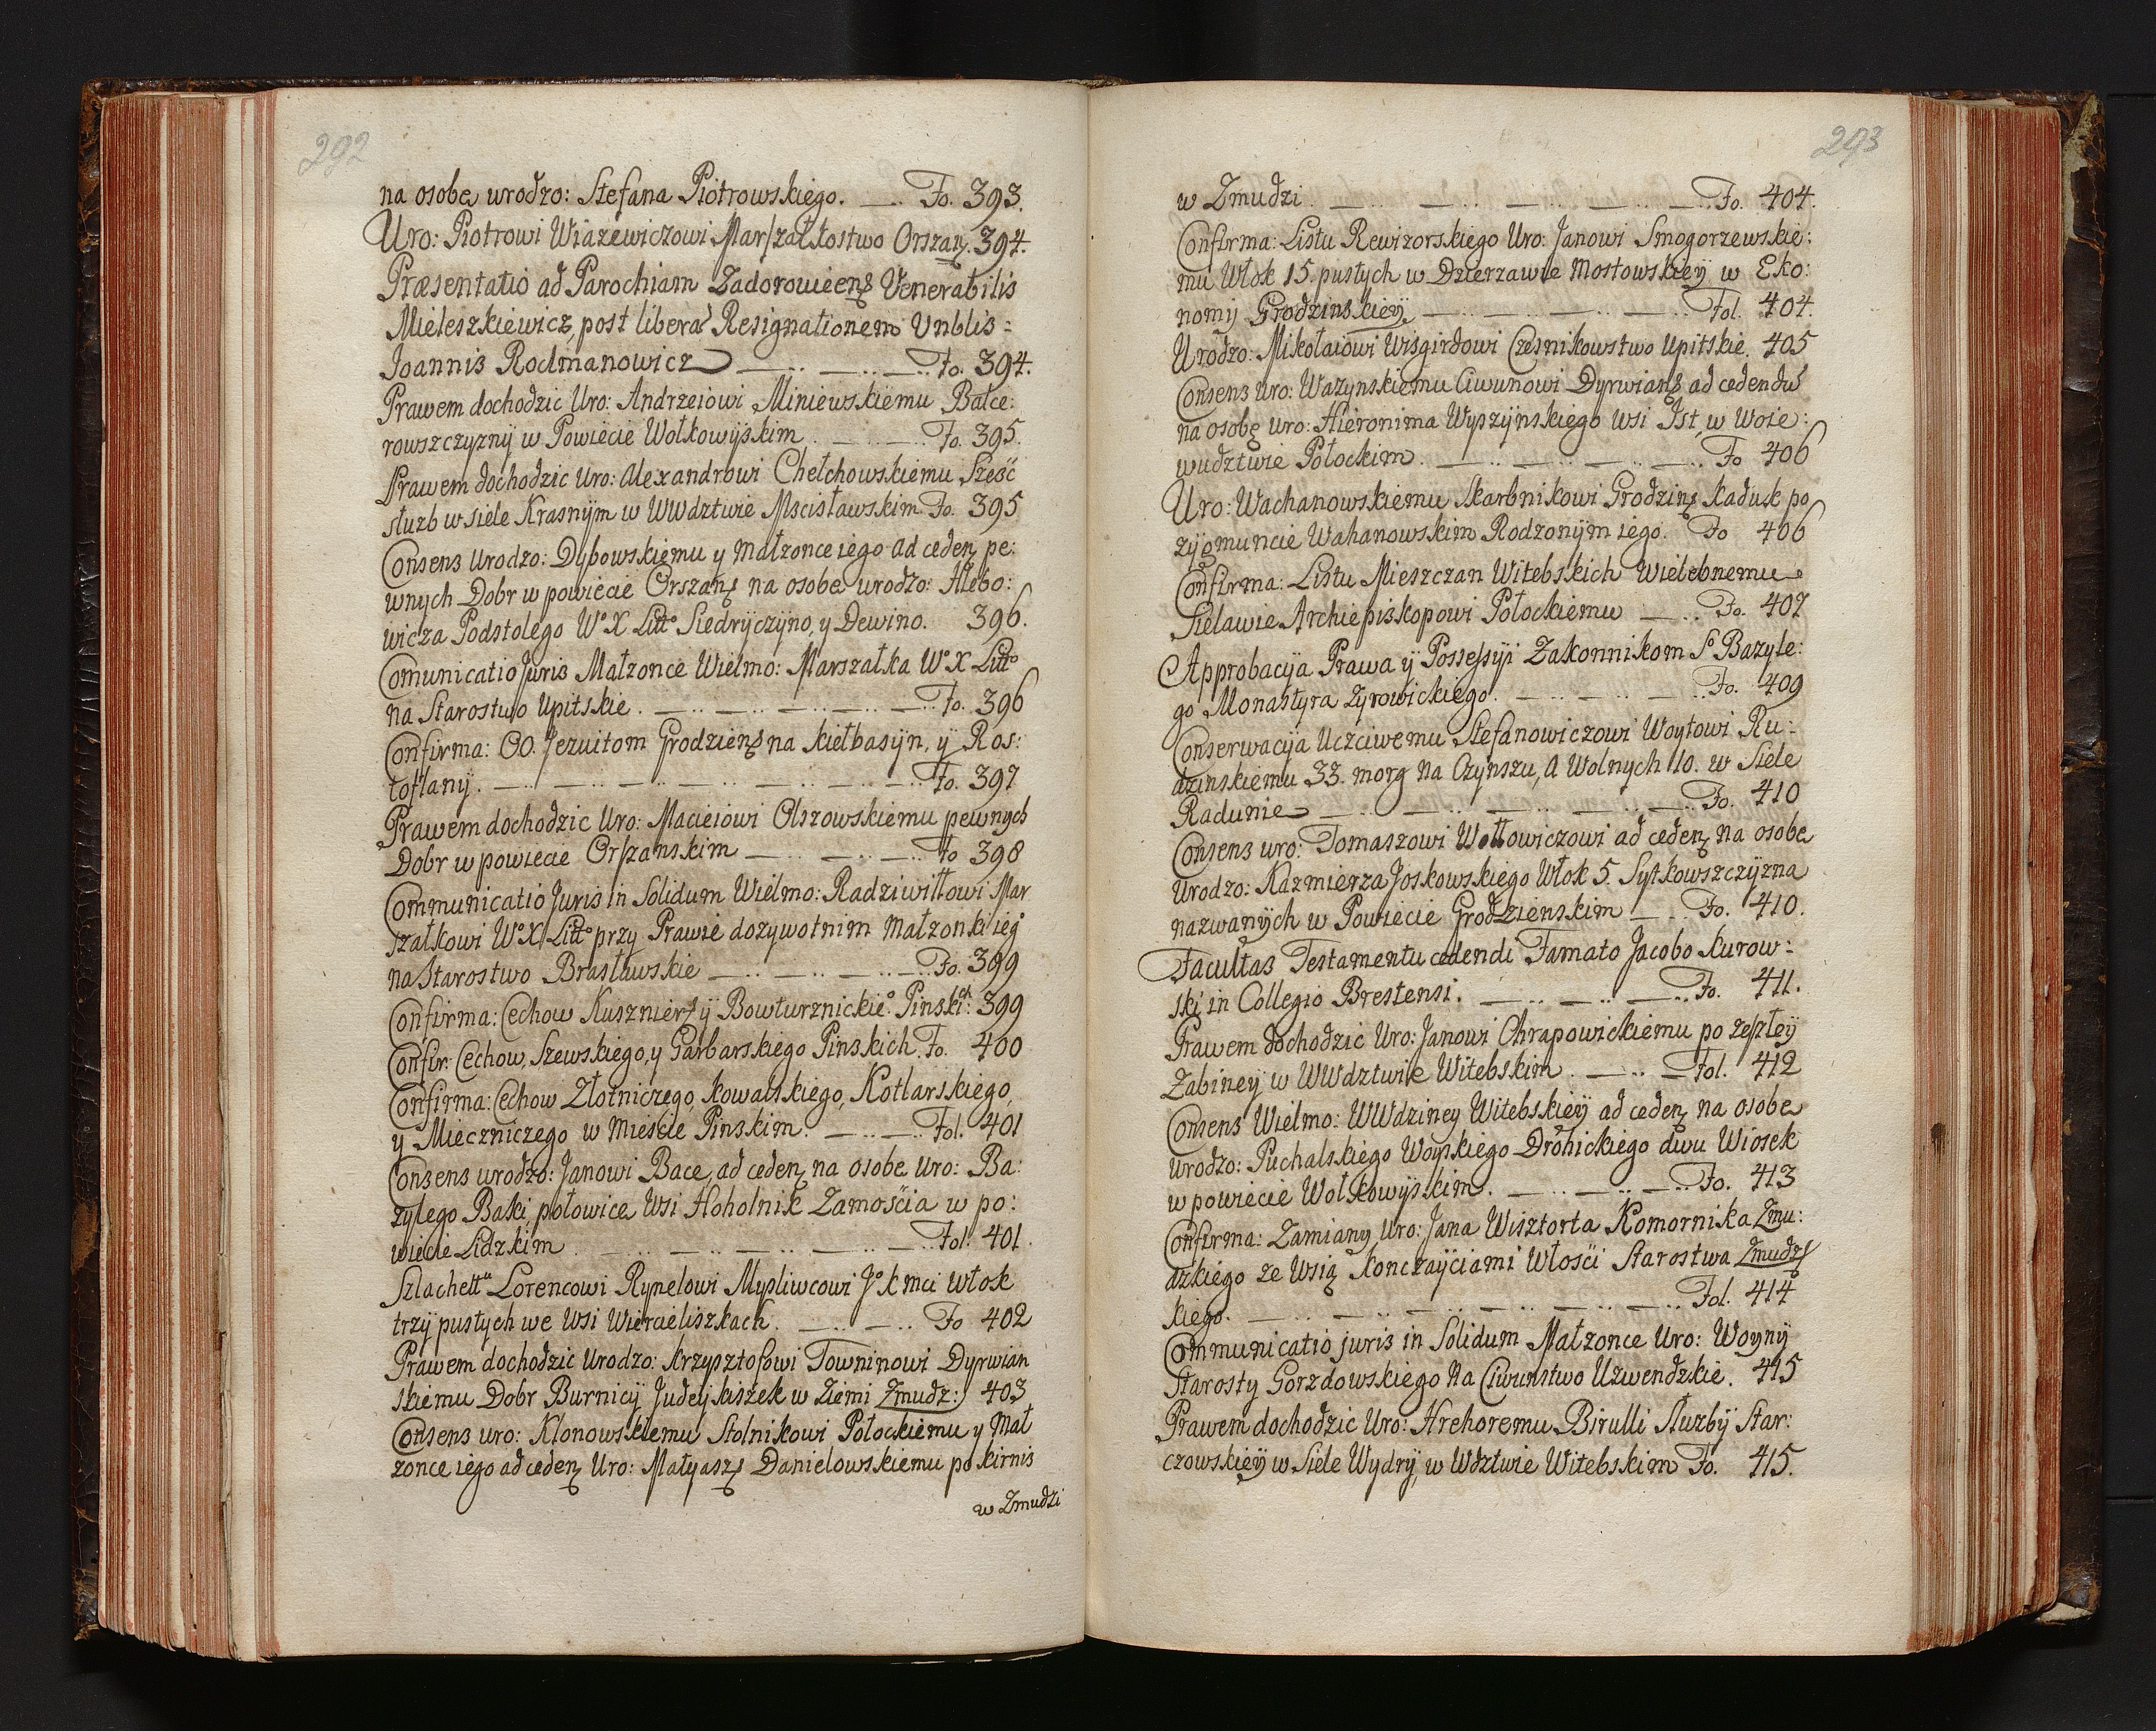 292
na osobę urodzo: Stefana Piotrowskiego. Fo. 393.
Uro: Piotrowi Wiazewiczowi Marszałkostwo Orszaņ. 394.
Præsentatio ad Parochiam Zadorowiens Venerabilis
Mieleszkiewicz, post libera Resignationem Vnblis:
Joannis Rodmanowicz Fo. 394.
Prawem dochodzic Uro: Andrzeiowi Miniewskiemu Bałce:
rowszczyzny w Powiecie Wołkowyskim. Fo. 395.
Prawem dochodzic Uro: Alexandrowi Chełchowskiemu Szesć
służb w siele Krasnÿm w WWdztwie Mscisławskim Fo. 395
Consens Urodzo: Dybowskiemu y małzonce iego ad ceden pe:
wnych Dobr w powiecie Orszans na osobę urodzo: Hlebo:
wicza Podstolego Wo X Litto Siedryczyno, y Dewino. 396.
Comunicatio Juris Małzonce Wielmo: Marszałka Wo X Litto
na Starostwo Upitskie. Fo. 396
Confirma: OO. Jezuitom Grodziens na Kiełbasÿn, ÿ Ros:
tołłanÿ. Fo. 397
Prawem dochodzic Uro: Macieiowi Olszowskiemu pewnych
Dobr w powiecie Orszanskim Fo 398
Communicatio Juris in Solidum Wielmo: Radziwiłłowi Mar
szałkowi Wo X Litto przy Prawie dozywotnim Małzonki ieg
na Starostwo Brasławskie Fo. 399
Confirma: Cechow Kuszniers ÿ Bowturznickieo Pinskich: 399
Confir: Cechow, Szewskiego, y Garbarskiego Pinskich. Fo. 400
Confirma: Cechow Złotniczego, Kowalskiego, Kotlarskiego,
y Mieczniczego w mieście Pinskim. Fol. 401
Consens urodzo: Janowi Bace, ad ceden na osobę Uro: Ba:
zylego Baki połowicę Wsi Hoholnik Zamościa w po:
wiecie Lidzkim Fol. 401.
Szlachett Lorencowi Rynelowi Mysliwcowi Jo K mci Włok
trzÿ pustych we Wsi Wieraeliszkach. Fo 402
Prawem dochodzic Urodzo: Krzysztofowi Towninowi Dyrwian
skiemu Dobr Burnicÿ Judeykiszek w Ziemi Zmudz: 403
Consens uro: Klonowskiemu Stolnikowi Połockiemu y Mał
zonce iego ad ceden Uro: Matyaszs Danielowskiemu po kirnis
w Zmudzi
293
w Zmudzi. Fo. 404.
Confirma: Listu Rewizorskiego Uro: Janowi Smogorzewskie:
mu Włok 15. pustych w Dzierzawie Mostowskieÿ w Eko:
nomÿ Grodzinskieÿ Fol. 404.
Urodzo: Mikołaiowi Wisgirdowi Czesnikowstwo Upitskie. 405
Consens Uro: Wazynskiemu Ciwunowi Dyrwians ad cedendu
na osobę Uro: Hieronima Wyszÿnskiego Wsi Ist, w Woie:
wudztwie Połockim. Fo 406
Uro: Wachanowskiemu Skarbnikowi Grodzins Kaduk po
zÿgmuncie Wahanowskim Rodzonÿm iego. Fo 406
Confirma: Listu Mieszczan Witebskich Wielebnemu
Sielawie Archiepiskopowi Połockiemu Fo. 407
Approbacÿa Prawa ÿ Possessÿi Zakonnikom So Bazyle:
go Monastyra zyrowickiego. Fo. 409
Conserwacÿa Uczciwemu Stefanowiczowi Woytowi Ru:
dzinskiemu 33. morg na Czynszu, a Wolnych 110. w Siele
Radunie Fo. 410
Consens uro: Tomaszowi Wołłowiczowi ad ceden na osobę
Urodzo: Kazmierza Joskowskiego Włok 5. Sytkowszczÿzna
nazwanÿch w Powiecie Grodzienskim Fo. 410.
Facultas Testamentu cedendi Famato Jacobo Kurow:
ski in Collegio Brestensi. Fo. 411.
Prawem dochodzic Uro: Janowi Chrapowickiemu po zeszłeÿ
Zabineÿ w WWdztwie Witebskim. Fol. 412
Consens Wielmo: WWdziney Witebskieÿ ad ceden na osobę
Urodzo: Puchalskiego Woyskiego Drohickiego dwu Wiosek
w powiecie Wołkowÿskim. Fo. 413
Confirma: Zamianÿ Uro: Jana Wisztorta Komornika Zmu:
dzkiego ze Wsią Konczaÿciami Włości Starostwa Zmudzs
kiego. Fol. 414
Communicatio juris in Solidum Małzonce Uro: Woynÿ
Starosty Gorzdowskiego Na Ciwunstwo Uzwendzkie. 415
Prawem dochodzic Uro: Hrehoremu Birulli Służbÿ Star:
czowskieÿ w Siele Wydrÿ, w Wdztwie Witebskim Fo. 415.